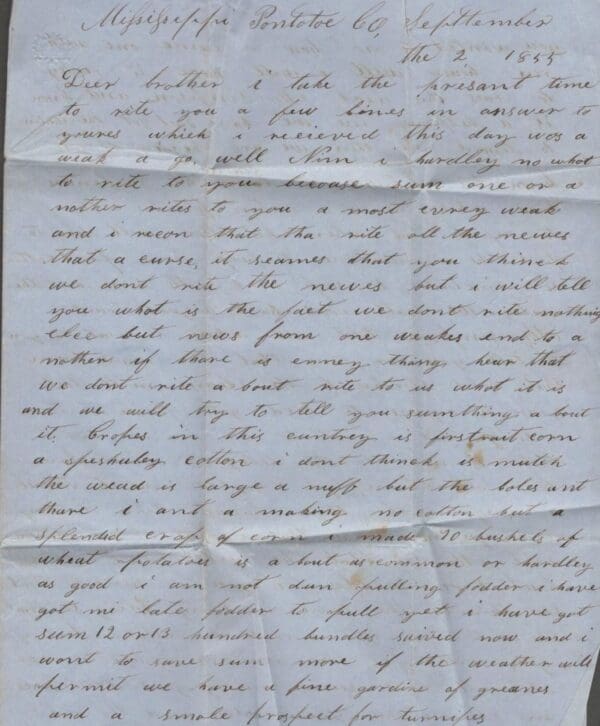 Mississippi Pontotoc Co, Septtember
the 2 1855
Deer brother i take the presant time
to rite you a few lines in answer to
youres which i recieved this day was a
weak a go, well Nim i hardley no what
to rite to you becoase sum one or a
nother rites to you a most evrey weak
and i recon that tha rite all the newes
that a curse, it seames that you think
we dont rite the newes but i will tell
you what is the fact we dont rite nothing
elce but news from one weakes end to a
nother if thare is enney thing hear that
we dont rite a bout rite to us what it is
and we will try to tell you sumthing a bout
it. Cropes in this cuntrey is firstrait corn
a speshuley cotton i dont thinck is mutch
the wead is large a nuff but the boles ant
thare i ant a making no cotton but a
splendid crop of corn i made 70 bushels of
wheat potatoes is a bout as common or hardley
as good i am not dun pulling fodder i have
got mi late fodder to pull yet i have got
sum 12 or 13 hundred bundles saived now and i
wont to save sum more if the weather will
permit we have a fine gardine of greanes
and a smale prospect for turnipes